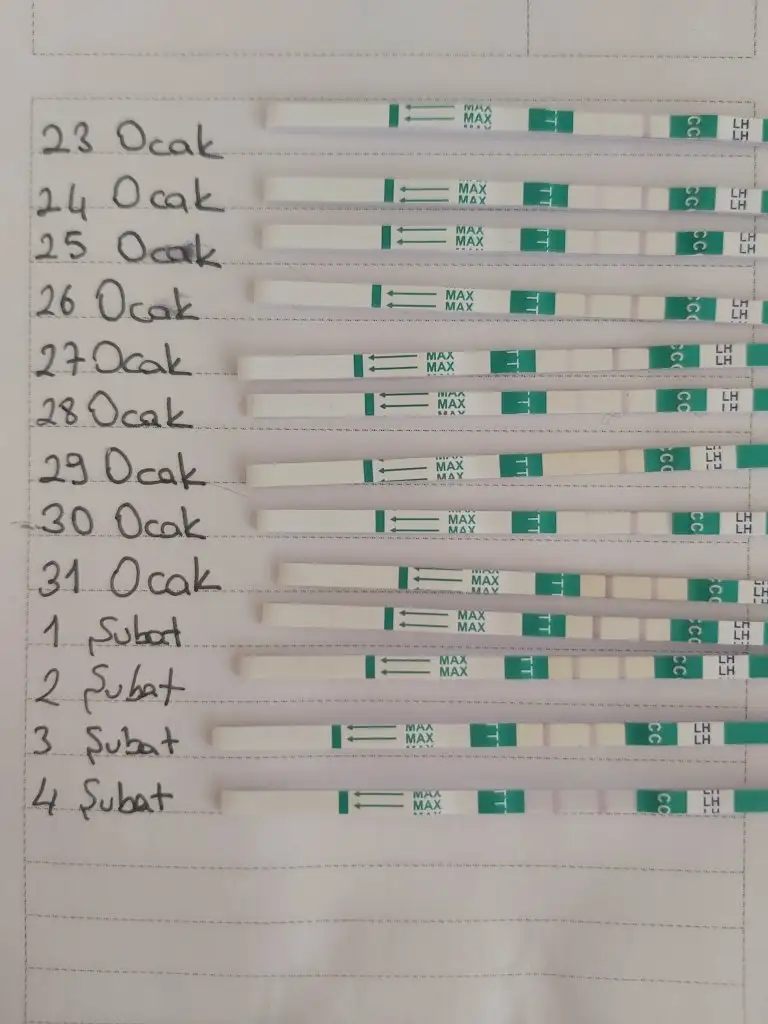 23 Ocak MAX MAX T T C C LH LH
24 Ocak MAX MAX T T C C LH LH
25 Ocak MAX MAX T T C C LH LH
26 Ocak MAX MAX T T C C LH LH
27 Ocak MAX MAX T T C C LH LH
28 Ocak MAX MAX MAX T T C C LH LH
29 Ocak MAX MAX MAX T T C C LH LH LH
30 Ocak MAX MAX MAX T T C C LH LH
31 Ocak MAX MAX MAX T T C C LH LH
1 Şubat MAX MAX T T C C LH LH
2 Şubat MAX MAX T T C C LH LH
3 Şubat MAX MAX T T C C LH LH
4 Şubat MAX MAX MAX T T C C LH LH